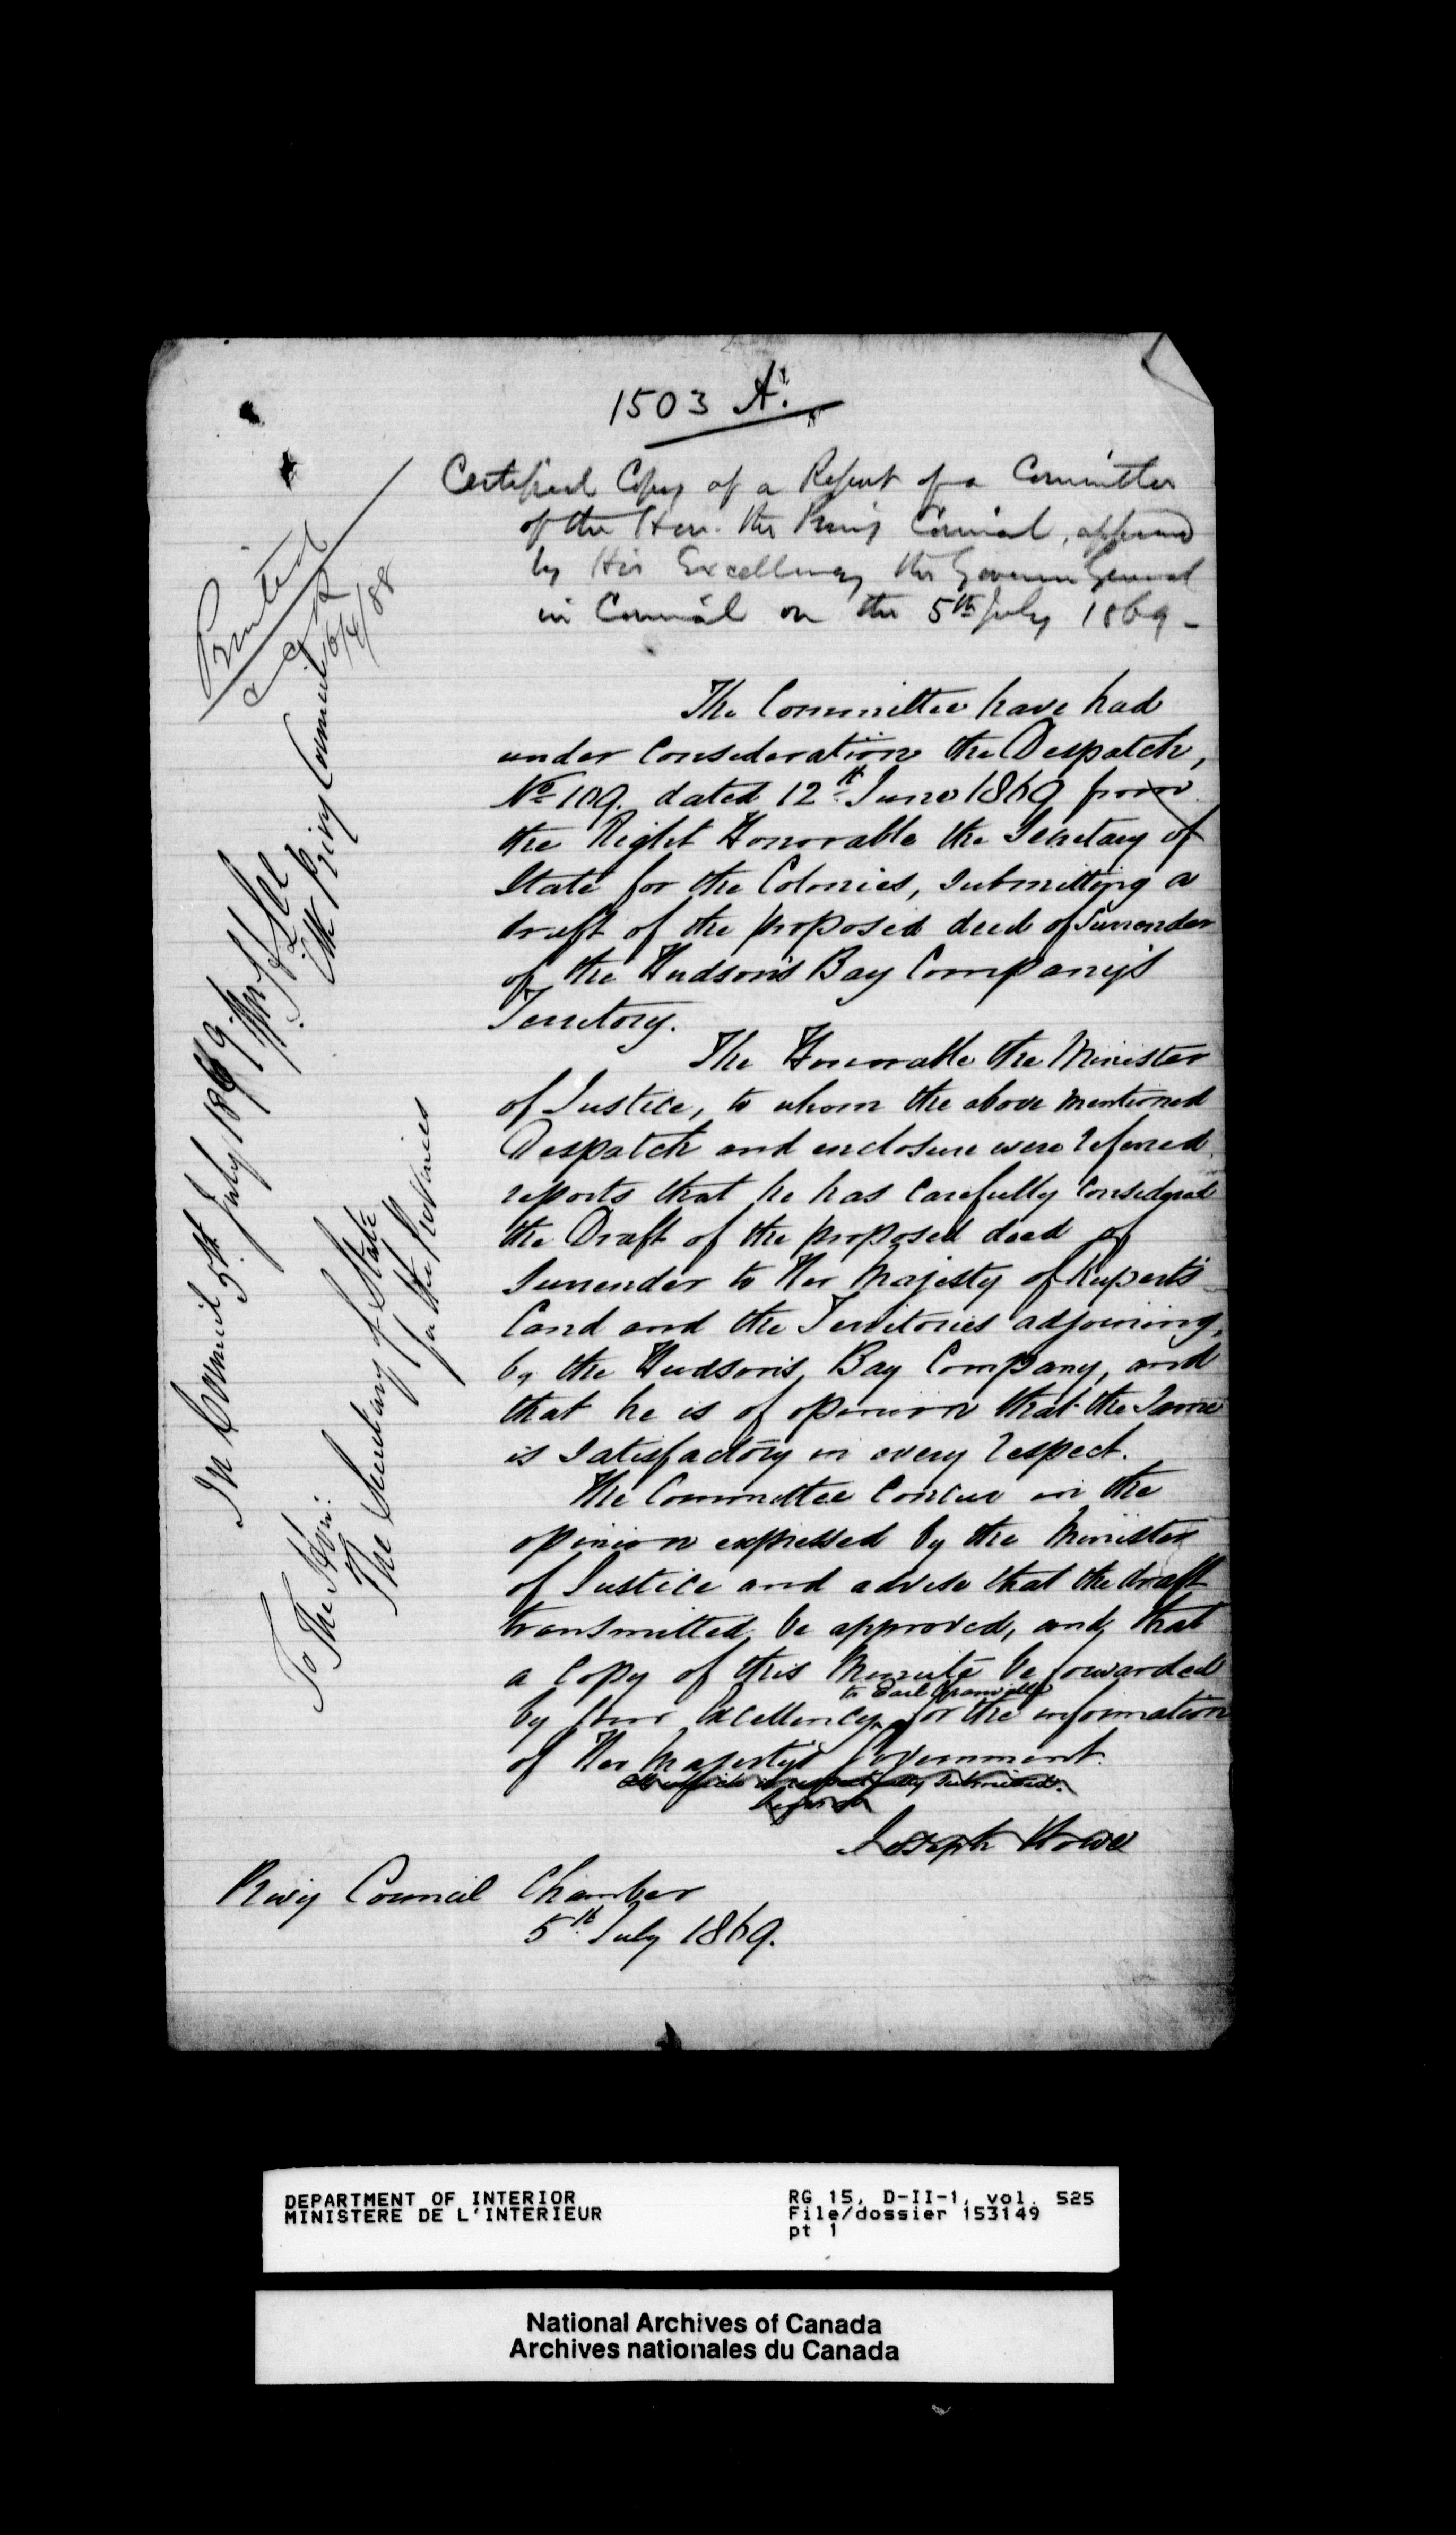 1503 A.
Certified Copy of a Report of a Committee
of the Hon. the Privy Council, approved
by His Excellency the Governor General
in Council on the 5th July 1869 -
Printed
6/4/88
The Committee have had
under consideration the Despatch,
No 109. dated 12th June 1869 from
the Right Honorable the Secretary of
State for the Colonies, submitting a
draft of the proposed deed of Surrender
of the Hudson's Bay Company's
Territory.
The Honorable the Minister
of Justice, to whom the above mentioned
Despatch and enclosure were referred
reports that he has carefully considered
the Draft of the proposed deed of
Surrender to Her Majesty of Rupert's
Land and the Territories adjoining,
by the Hudson's Bay Company, and
that he is of opinion that the same
is satisfactory in every respect.
The Committee concur in the
opinion expressed by the Minister
of Justice and advise that the draft
transmitted be approved, and that
a copy of this Minute be forwarded
to Earl Granville
by Your Excellency for the information
of Her Majesty's Government.
All which is respectfully submitted.
Joseph Howe
Privy Council Chamber
5th July 1869.
In Council 5th July 1869
Clk Privy Council
To The Hon:
The Secretary of State
for the Provinces
DEPARTMENT OF INTERIOR
MINISTERE DE L'INTERIEUR
RG 15, D-II-1, vol. 525
File/dossier 153149
pt 1
National Archives of Canada
Archives nationales du Canada